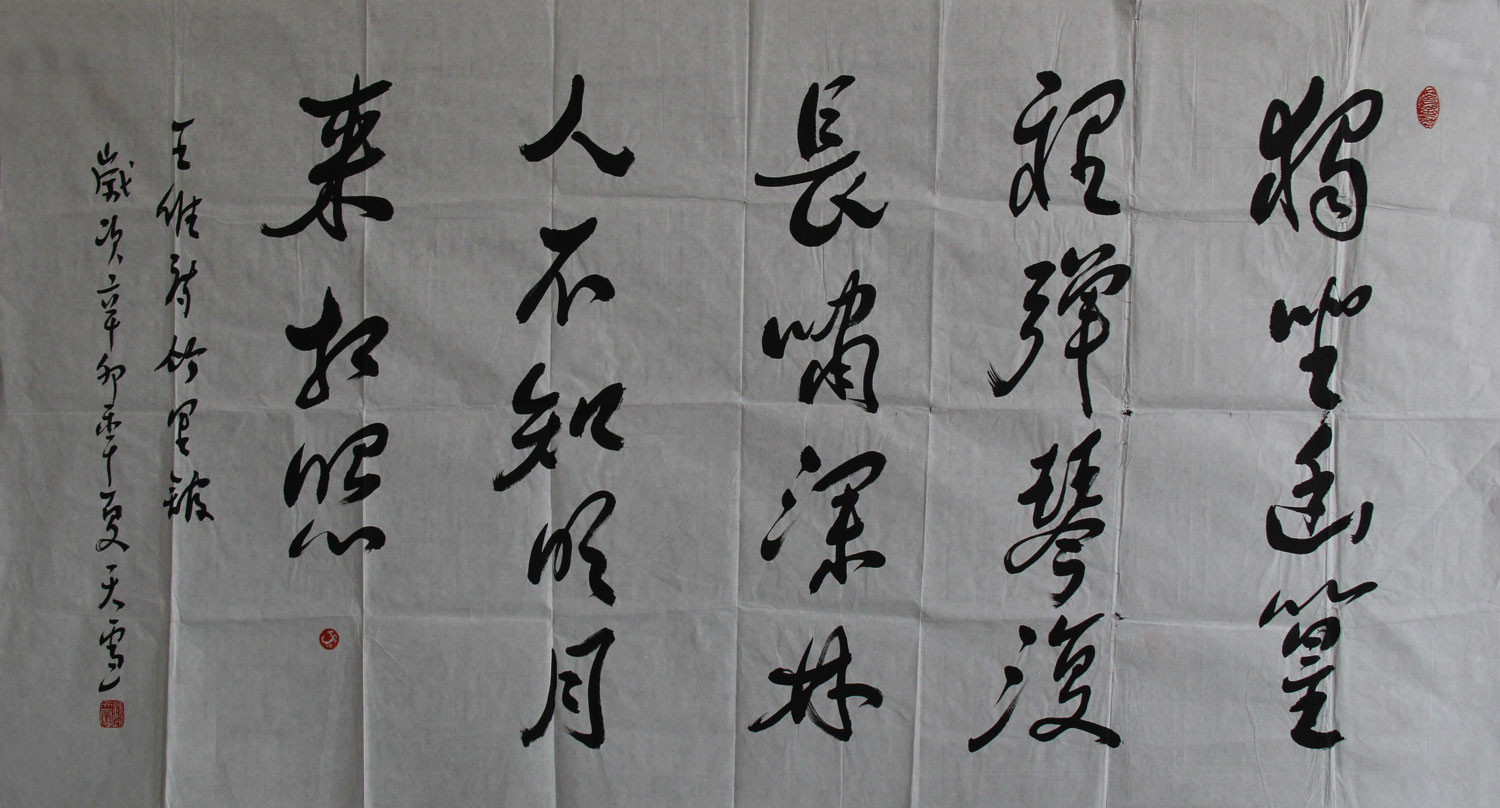 獨坐幽篁
裡彈琴復
長嘯深林
人不知明月
來相照
王維詩竹里館
歲次辛卯季夏天雪